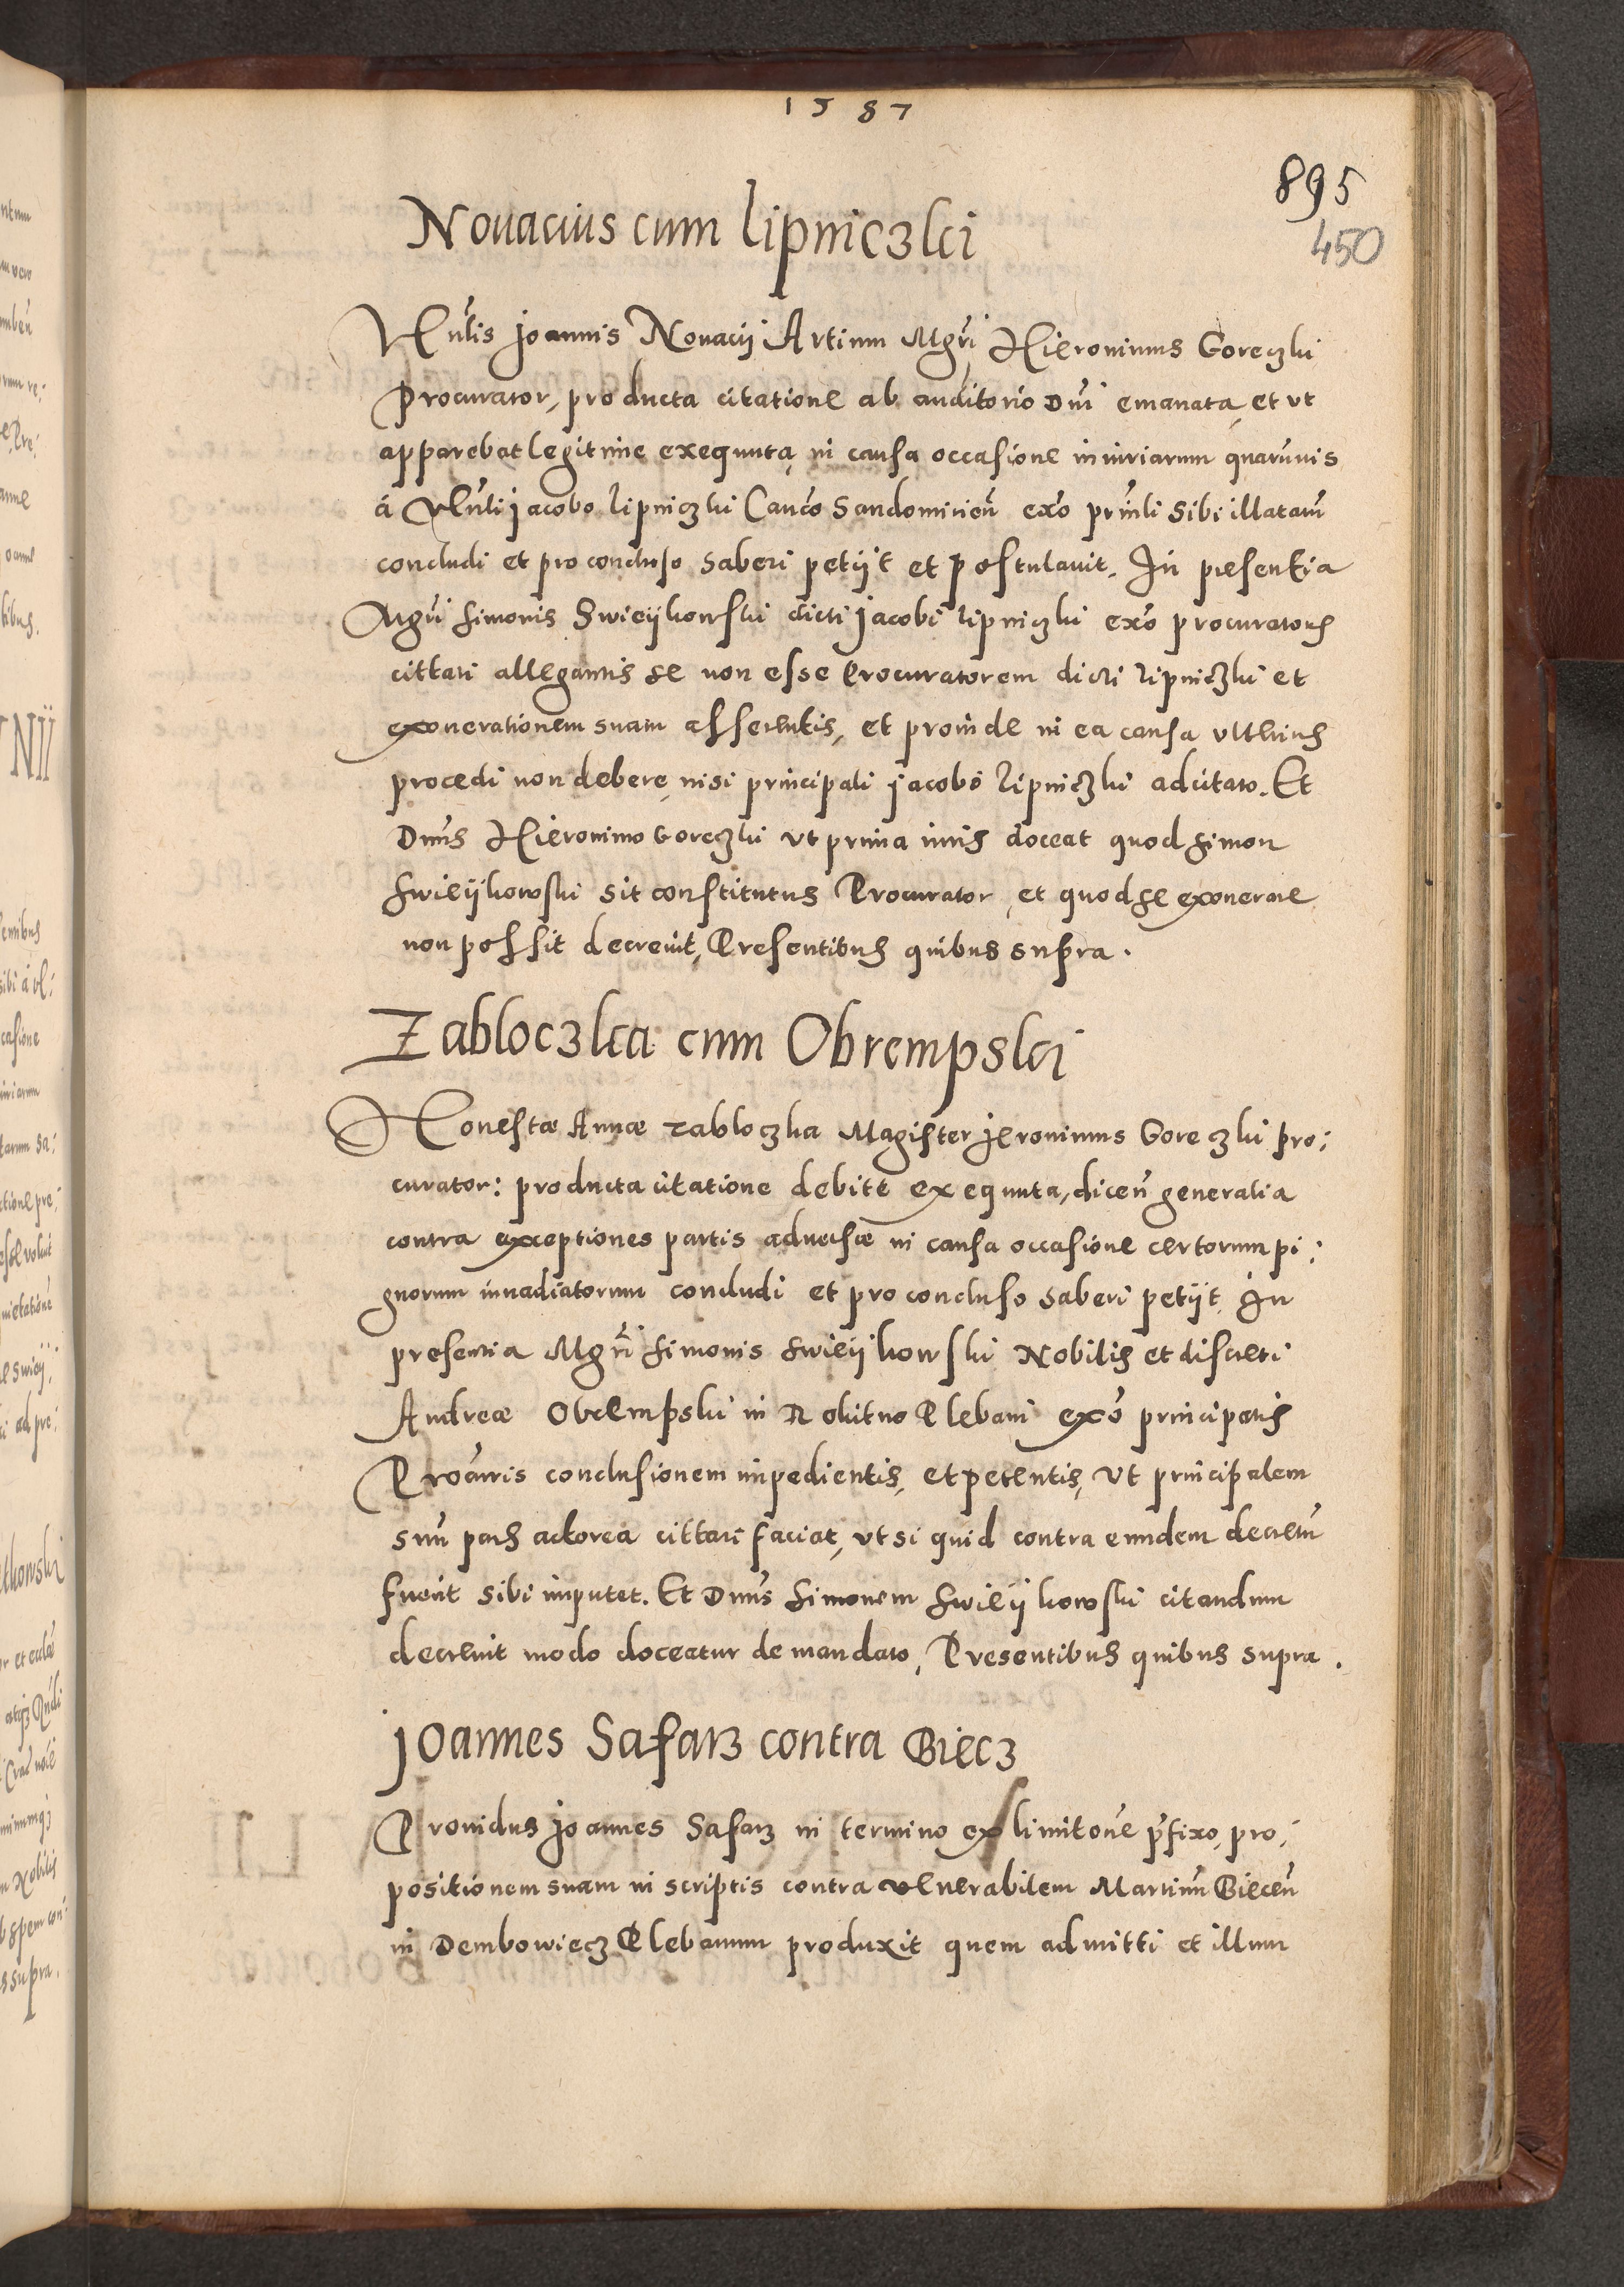 1587
895
450
Nouacius cum Lipniczki
Vnlis Joannis Nouacij Artium Mgri Hieronimus Goreczki
Procurator, producta citatione ab auditorio Dni emanata, et vt
apparebat legitime exequuta, in causa occasione iniuriarum quarumuis
á Vlnli Jacobo Lipniczki Canco Sandomirien exo prinli sibi illatarum
concludi et pro concluso haberi petijt et postulauit. In presentia
Mgri Simonis Swieijkowski dicti Jacobi Lipniczki exo procuratoris
cittati allegantis se non esse Procuratorem dicti Lipniczki et
exonerationem suam asserentis, et proinde in ea causa vlterius
procedi non debere, nisi principali Jacobo Lipniczki adcitato. Et
Dnus Hieronimo Goreczki vt prima iuris doceat quod Simon
Swieijkowski sit constitutus Procurator, et quod se exonerare
non possit decreuit, Presentibus quibus supra.
Zabloczka cum Obrempski
Honestæ Annæ Zabloczka Magister Jeronimus Goreczki pro:
curator: producta citatione debite exequuta, dicen generalia
contra exceptiones partis aduersæ in causa occasione certorum pi:
gnorum inuadiatorum concludi et pro concluso haberi petijt. In
presentia Mgri Simonis Swieijkowski Nobilis et discreti
Andreæ Obrempski in Rokitno Plebani exo principalis
Procuris conclusionem impedientis, et petentis, vt principalem
suum pars actorea cittari faciat, vt si quid contra eundem decretum
fuerit sibi imputet. Et Dnus Simonem Swieijkowski citandum
decreuit modo doceatur de mandato, Presentibus quibus supra.
Joannes Safarz contra Biecz
Prouidus Joannes Safarz in termino ex limitone pfixo, pro:
positionem suam in scriptis contra venerabilem Martinum Biecen
in Dembowiecz Plebanum produxit quem admitti et illum